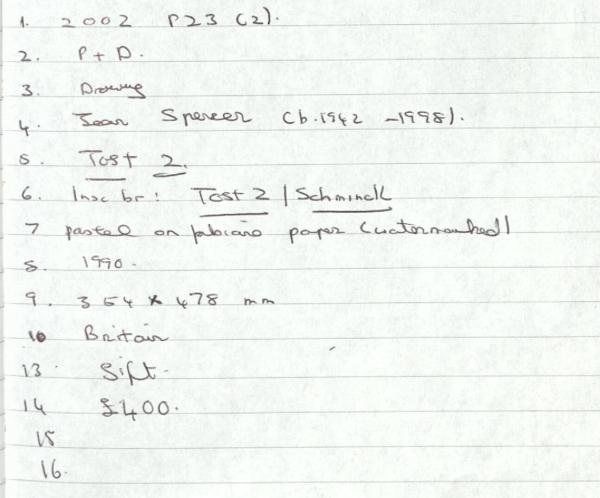 1. 2002 P23 (2).
2. P + D.
3. Drawing
4. Jean Spencer (b.1942 - 1998).
5. Test 2.
6. Insc br: Test 2 / Schminck
7 pastel on fabiano paper (watermarked)
8. 1990.
9. 354 x 478 mm
10 Britain
13. Gift.
14 £400.
15
16.